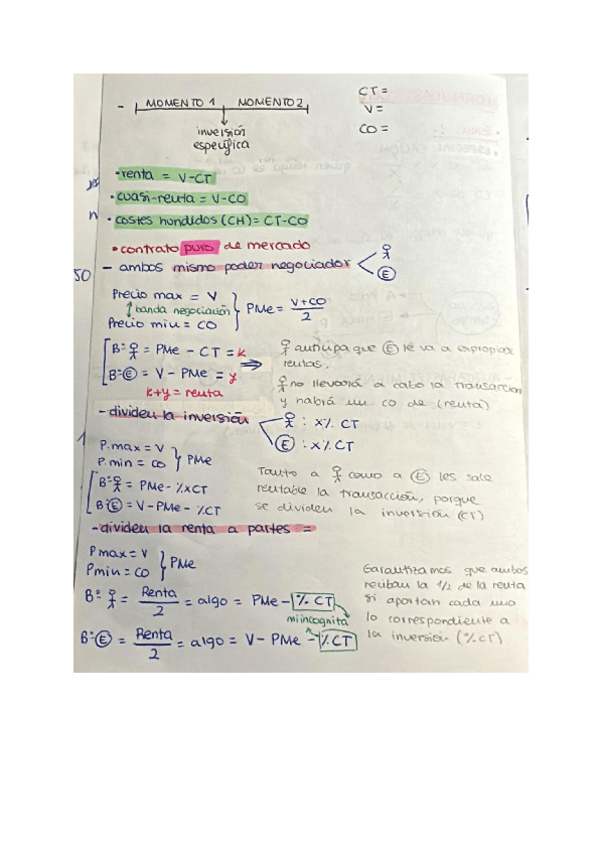 - MOMENTO 1 MOMENTO 2
inversión
específica
CT =
V =
CO =
• renta = V-CT
• cuasi-renta = V-CO
n • costes hundidos (CH) = CT-CO
• contrato puro de mercado
50 - ambos mismo poder negociador
E
Precio max = V
banda negociación
Precio min = CO
PMe = V+CO / 2
Bº = PMe - CT = k
Bº E = V - PMe = y
k+y = renta
anticipa que E le va a expropiar
rentas.
no llevará a cabo la transacción
y habrá un co de (renta)
- dividen la inversión
: x% CT
E : x% CT
1
P.max = V
P.min = CO
PMe
Bº = PMe - %xCT
Bº E = V - PMe - %CT
Tanto a como a E les sale
rentable la transacción, porque
se dividen la inversión (CT)
- dividen la renta a partes =
Pmax = V
Pmin = CO
PMe
Bº = Renta / 2 = algo = PMe - %CT
mi incógnita
Bº E = Renta / 2 = algo = V - PMe - %CT
Garantizamos que ambos
reciban la 1/2 de la renta
si aportan cada uno
lo correspondiente a
la inversión (%CT)